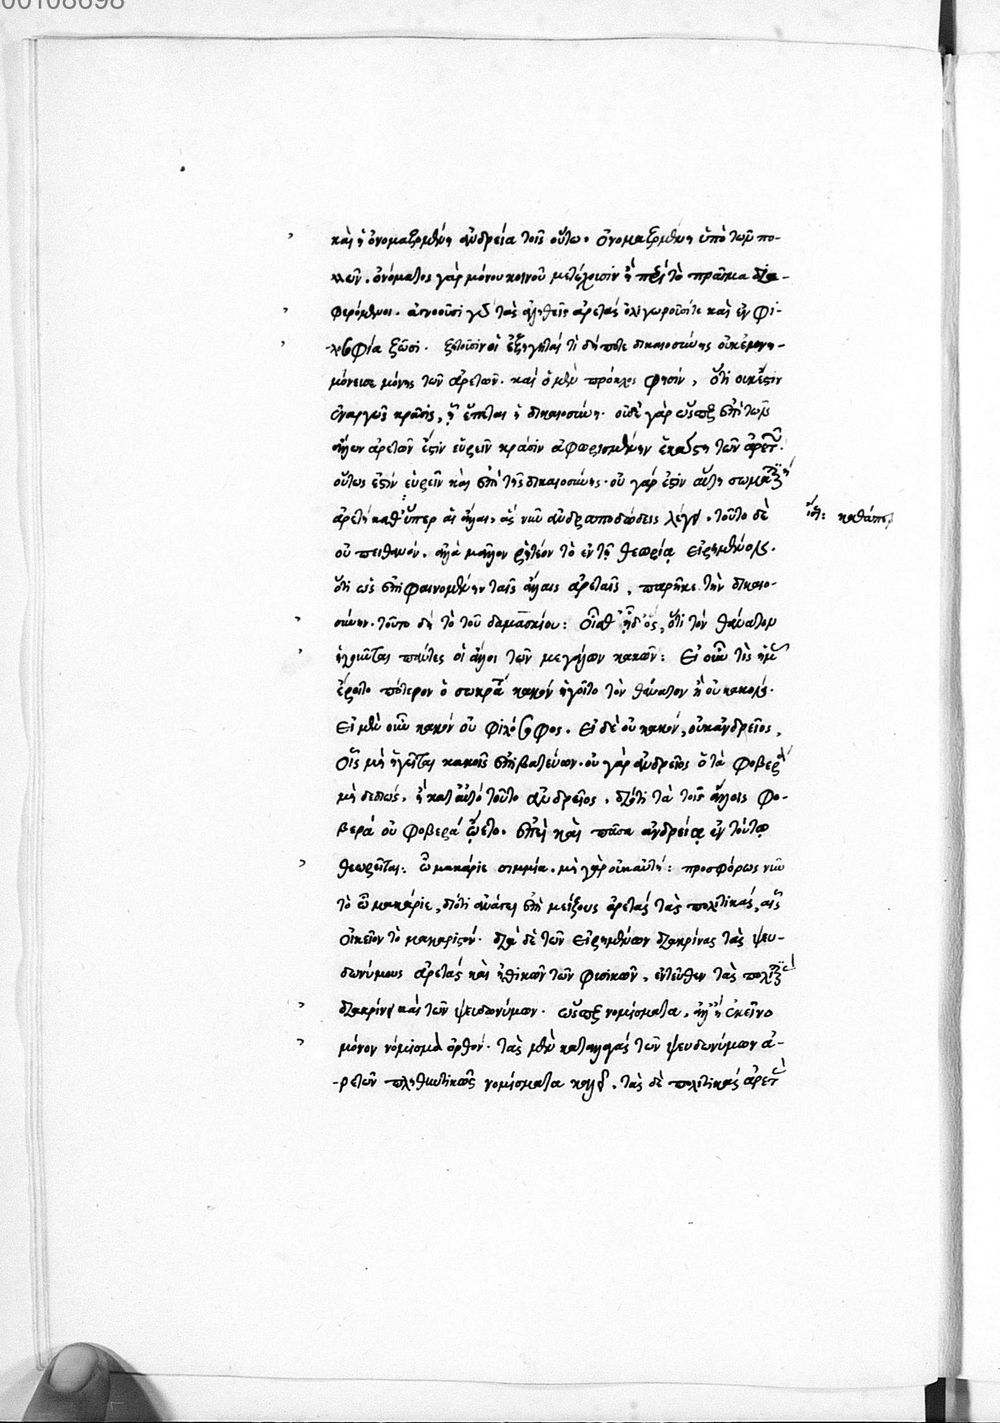 00108698
καὶ ἡ ὀνομαζομένη ἀνδρεία τοῖς οὕτω· ὀνομαζομένη ὑπὸ τῶν πο-
λλῶν. ὀνόματος γὰρ μόνου κοινοῦ μετέχουσιν ἢ περὶ τὸ πρᾶγμα δια-
φερόμενοι. ἀγνοοῦσι γὰρ τὰς ἀληθεῖς ἀρετὰς ὀλιγωροῦσί τε καὶ ἐν φι-
-λοσοφία ζῶσι. ζητοῦσιν οἱ ἐξηγηταὶ τί δήποτε δικαιοσύνης οὐκ ἐμνη-
μόνευσε μόνης τῶν ἀρετῶν. καὶ ὁ μὲν πρόκλος φησὶν, ὅτι οὐκ ἔστιν
ἐναργὴς κρᾶσις, ᾗ ἕπεται ἡ δικαιοσύνη. οὐδὲ γὰρ ὥσπερ ἐπὶ τῶν
ἄλλων ἀρετῶν ἐστὶν εὑρεῖν κρᾶσιν ἀφωρισμένην ἑκάστη τῶν ἀρετῶν.
οὕτως ἐστὶν εὑρεῖν καὶ ἐπὶ τῆς δικαιοσύνης. οὐ γάρ ἐστιν αὕτη σωματικὴ
ἀρετὴ καθ' ὕπερ αἱ ἄλλαι, ἃς νῦν ἀνδραποδώδεις λέγει. τοῦτο δὲ
καθάπερ
οὐ πειθανόν. ἀλλὰ μᾶλλον ῥητέον τὸ ἐν τῇ θεωρίᾳ εἰρημένον.
ὅτι ὡς ἐπιφαινομένην ταῖς ἄλλαις ἀρεταῖς, παρῆκε τὴν δικαιο-
σύνην. τοῦτο δὴ τὸ τοῦ δαμασκίου: οἶσθ' ἦ δ' ὃς, ὅτι τὸν θάνατον
ἡγοῦνται πάντες οἱ ἄλλοι τῶν μεγάλων κακῶν: Εἰ οὖν τὶς ἡμᾶς
ἔροιτο πότερον ὁ σωκράτης κακὸν ἡγοῖτο τὸν θάνατον ἢ οὐ κακόν.
Εἰ μὲν οὖν κακὸν οὐ φιλόσοφος. Εἰ δὲ οὐ κακόν, οὐκ ἀνδρεῖος,
οἷς μὴ ἡγεῖται κακοῖς ἐπιβατεύων. οὐ γὰρ ἀνδρεῖος ὁ τὰ φοβερὰ
μὴ δεδιώς. ἢ κατ' αὐτὸ τοῦτο ἀνδρεῖος, διότι τὰ τοῖς ἄλλοις φο-
βερὰ οὐ φοβερὰ ᾤετο. ἐπεὶ καὶ πᾶσα ἀνδρεία ἐν τούτῳ
θεωρεῖται: ὦ μακάριε σιμμία. μὴ γὰρ οὐκ αὐτὴ: προσφόρως νῦν
τὸ ὦ μακάριε, διότι ἀνάγει ἐπὶ μείζους ἀρετὰς τὰς πολιτικάς, αἷς
οἰκεῖον τὸ μακαριστόν. διὰ δὲ τῶν εἰρημένων διακρίνας τὰς ψευ-
δωνύμους ἀρετὰς καὶ ἠθικῶν τῶν φυσικῶν, ἐντεῦθεν τὰς πολιτικὰς
διακρίνει καὶ τῶν ψευδωνύμων. ὥσπερ νομίσματα. ἀλλ' ᾖ ἐκεῖνο
μόνον νόμισμα ὀρθόν. τὰς μὲν καταλλαγὰς τῶν ψευδωνύμων ἀ-
-ρετῶν πληθυντικῶς νομίσματα καλεῖ. τὰς δὲ πολιτικὰς ἀρετὰς